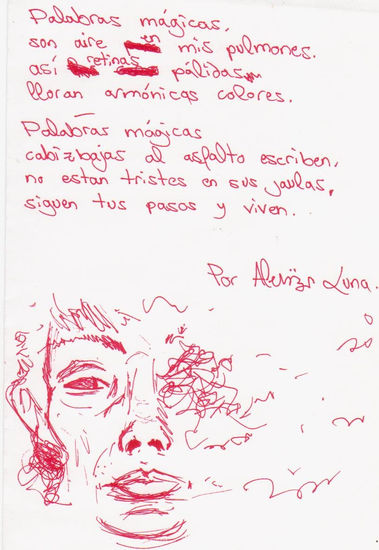 Palabras mágicas,
son aire en mis pulmones.
así retinas pálidas
lloran armónicas colores.
Palabras mágicas
cabizbajas al asfalto escriben,
no estan tristes en sus jaulas,
siguen tus pasos y viven.
Por Luna.